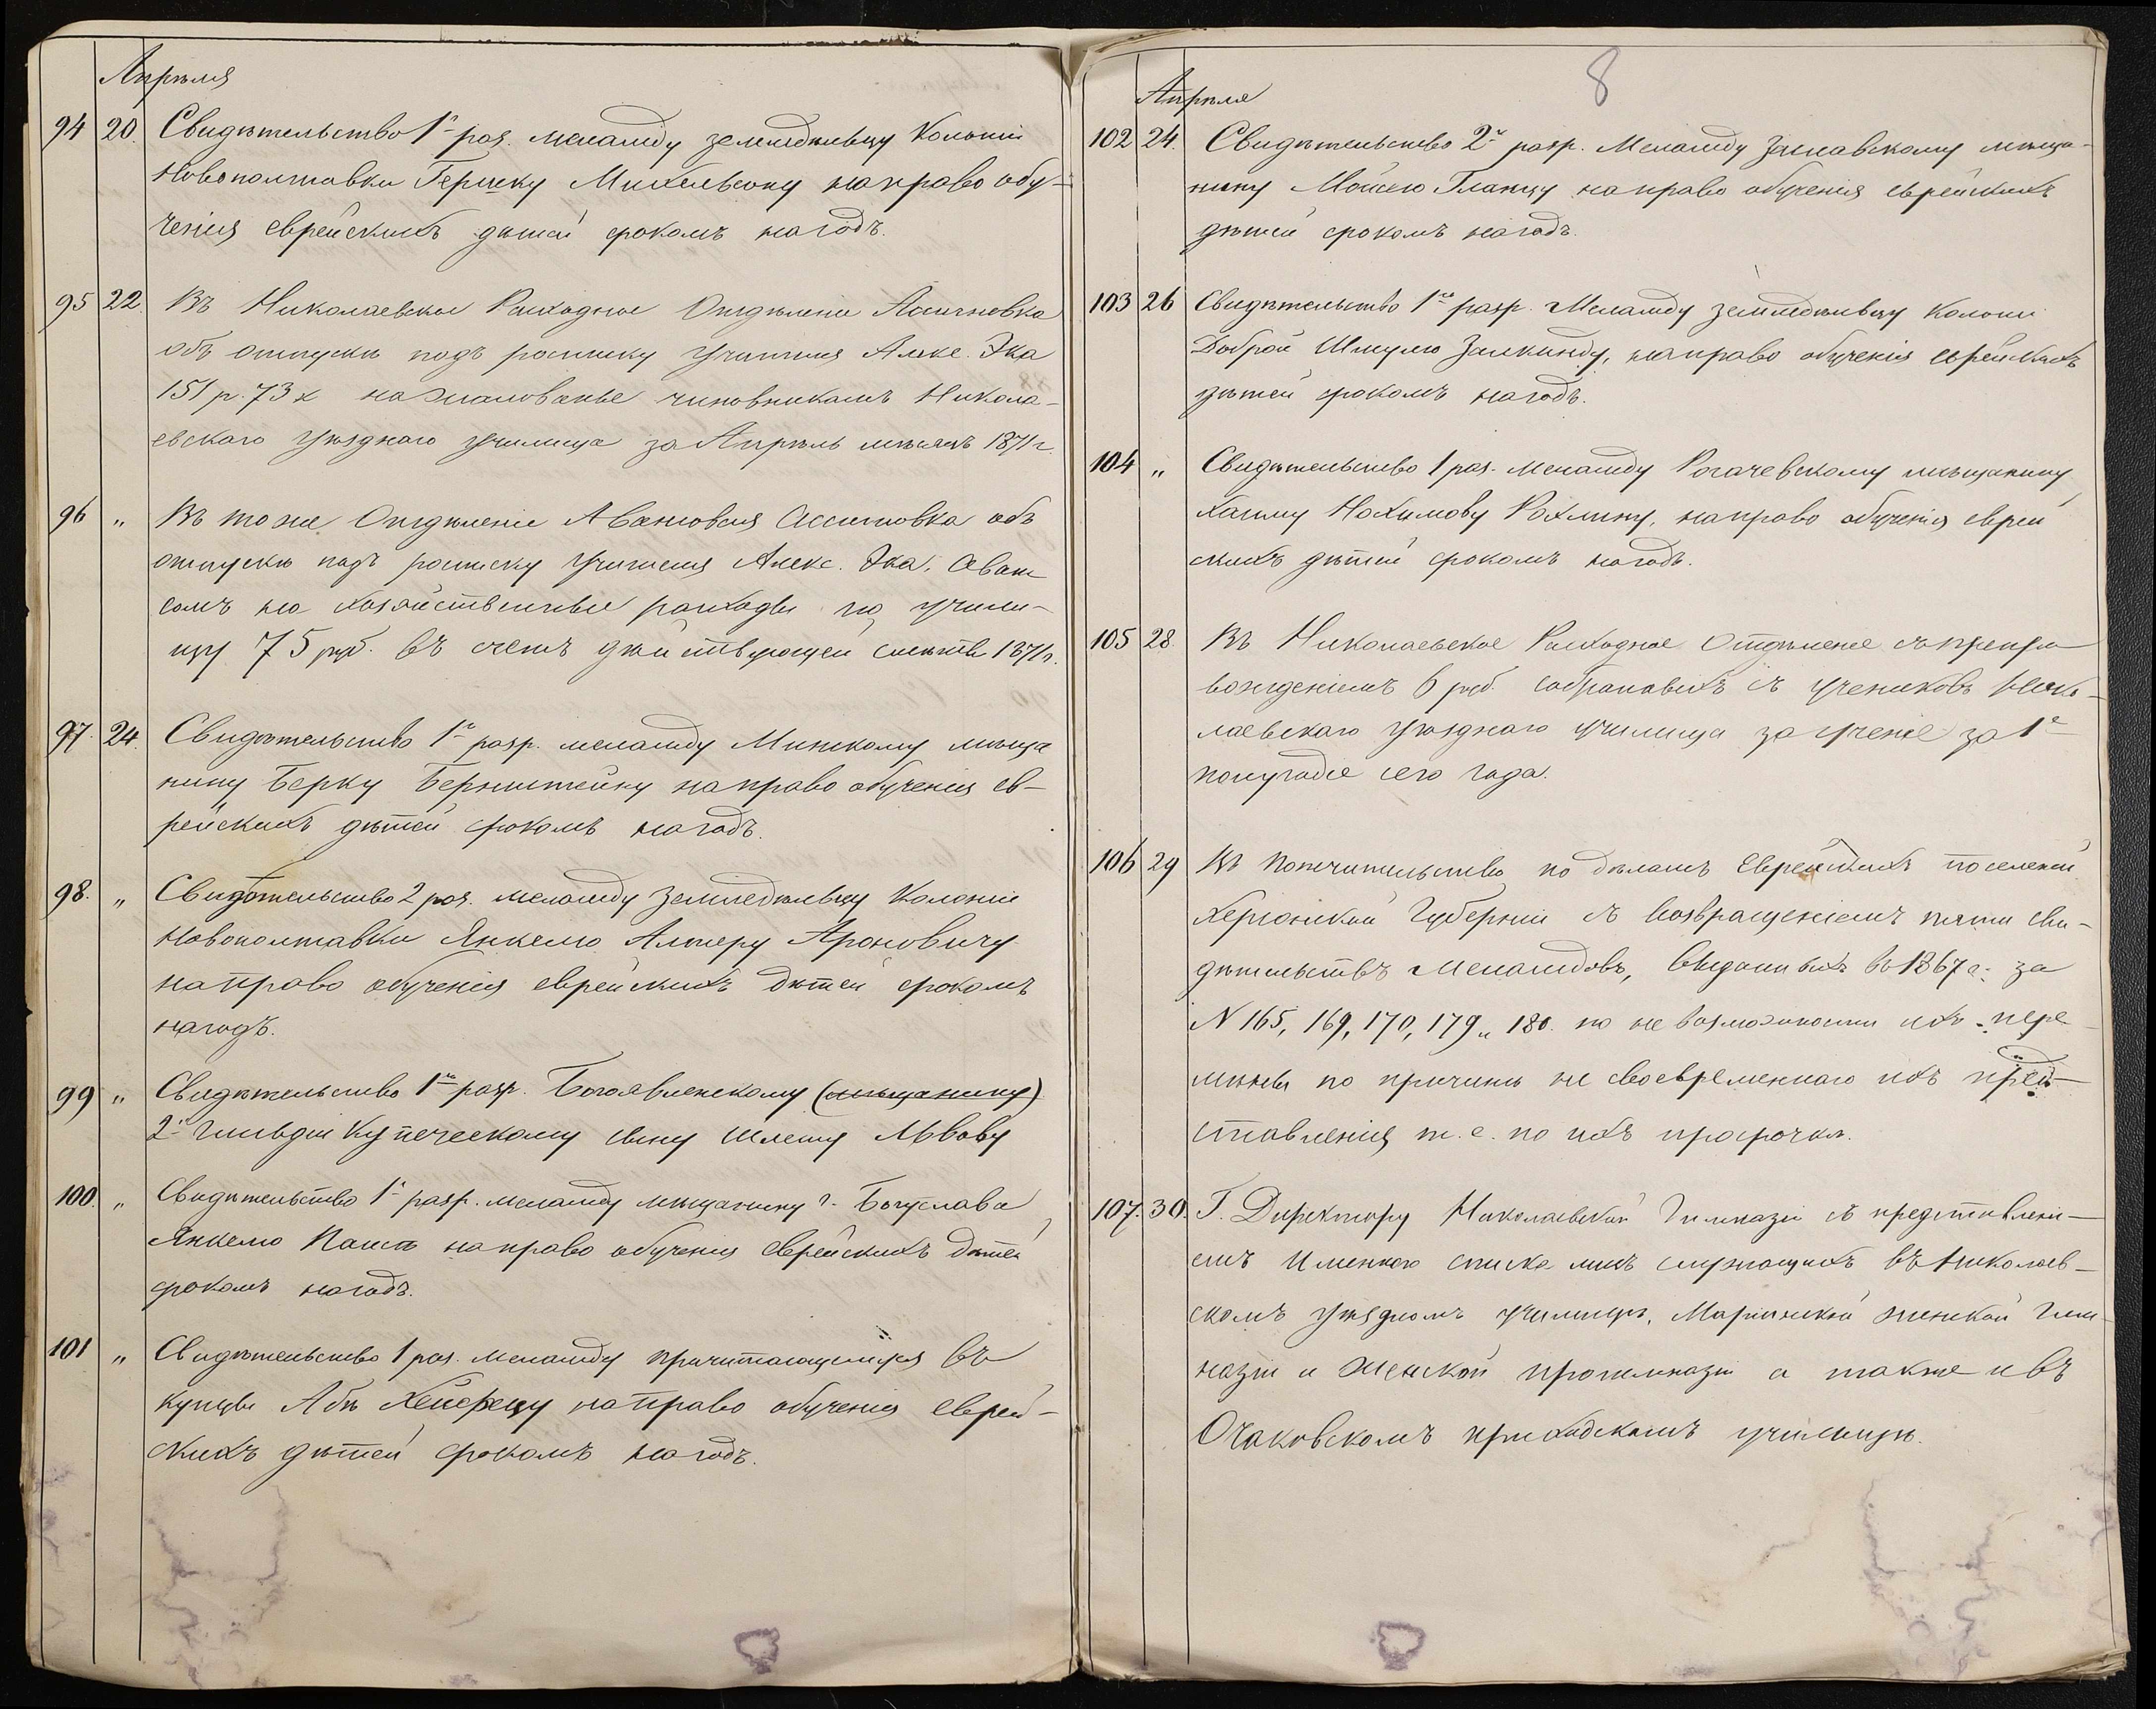 Апрѣля
94 20. Свидѣтельство 1го раз. меламду земледѣльцу Колоніи
Новополтавки Гершку Михельсону на право обу-
ченія еврейскихъ дѣтей срокомъ на годъ.
95 22. Въ Николаевское Расходное Отдѣленіе Ассигновка
объ отпускѣ подъ росписку Учителя Алекс. Эка
151 р. 73 к на жалованье чиновникамъ Никола-
евскаго Уѣзднаго Училища за Апрѣль мѣсяцъ 1871 г.
96 „ Въ то же Отдѣленіе Авансовая Ассигновка объ
отпускѣ подъ росписку Учителя Алекс. Эка, Аван
сомъ на хозяйственные расходы по учили-
щу 75 руб. въ счетъ дѣйствующей смѣты 1871 г.
97. 24. Свидѣтельство 1го разр. меламду Минскому мѣща
нину Берку Бернштейну на право обученія ев-
рейскихъ дѣтей срокомъ на годъ.
98. „ Свидѣтельство 2 раз. меламду земледѣльцу Колоніи
Новополтавки Янкелю Алтеру Ароновичу
на право обученія еврейскихъ дѣтей срокомъ
на годъ.
99 „ Свидѣтельство 1го разр. Богоявленскому (мѣщанину)
2й гильдіи купеческому сыну Шлемѣ Львову
100. „ Свидѣтельство 1го разр. меламду мѣщанину г. Богуслава
Янкелю на право обученія Еврейскихъ дѣтей
срокомъ на годъ.
101 „ Свидѣтельство 1 раз. меламду причитающемуся въ
купцы Абѣ Хейфецу на право обученія еврей-
скихъ дѣтей срокомъ на годъ.
8
Апрѣля
102 24. Свидѣтельство 2го разр. Меламду Заславскому мѣща-
нину Мойсею Гланцу на право обученія еврейскихъ
дѣтей срокомъ на годъ.
103 26 Свидѣтельство 1го разр. Меламду земледѣльцу Колоніи
Доброй Шмулю Залкинду, на право обученія еврейскихъ
дѣтей срокомъ на годъ.
104 „ Свидѣтельство 1 раз. меламду Рогачевскому мѣщанину
Хаиму Нохимову Рохлину, на право обученія еврей
скихъ дѣтей срокомъ на годъ.
105 28. Въ Николаевское Расходное Отдѣленіе съ препро
вожденіемъ 6 руб. собранныхъ съ учениковъ Нико-
лаевскаго Уѣзднаго Училища за ученіе за 1е
полугодіе сего года.
106 29 Въ Попечительство по дѣламъ Еврейскихъ поселеній
Херсонской Губерніи съ возвращеніемъ пяти сви-
дѣтельствъ Меламдовъ, выданныхъ въ 1867 г. за
N 165, 169, 170, 179 и 180. по не возможности ихъ пере
мѣны по причинѣ не своевременнаго ихъ пред-
ставленія т. е. по ихъ просрочкѣ.
107. 30. Г. Директору Николаевской Гимназіи съ представлені-
емъ Именнаго списка лицъ служащихъ въ Николаев-
скомъ Уѣздномъ Училищѣ, Маріинской женской Гим-
назіи и Женской прогимназіи а также и въ
Очаковскомъ приходскомъ училищѣ.